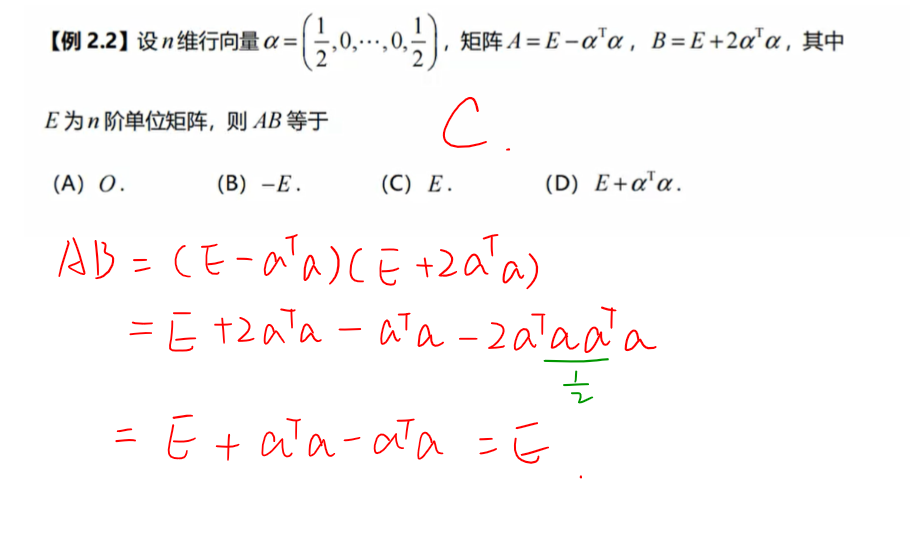 【例 2.2】设 n 维行向量 α = (1/2, 0, ⋯, 0, 1/2)，矩阵 A = E − αᵀα，B = E + 2αᵀα，其中
E 为 n 阶单位矩阵，则 AB 等于
C.
(A) O. (B) −E. (C) E. (D) E + αᵀα.
AB = (E − αᵀα)(E + 2αᵀα)
= E + 2αᵀα − αᵀα − 2αᵀααᵀα
1/2
= E + αᵀα − αᵀα = E.